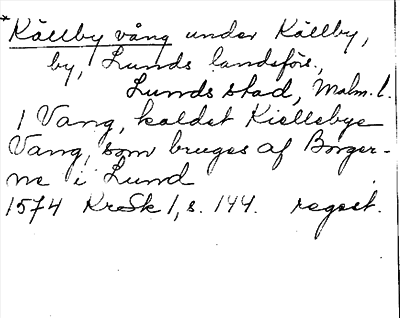 *Källby vång under Källby,
by, Lunds landsförs.,
Lunds stad, Malm. l.
1 Vang, kaldet Kiellebye
Vang, som bruges af Borger-
ne i Lund
1574 KrSk 1, s. 144. regest.